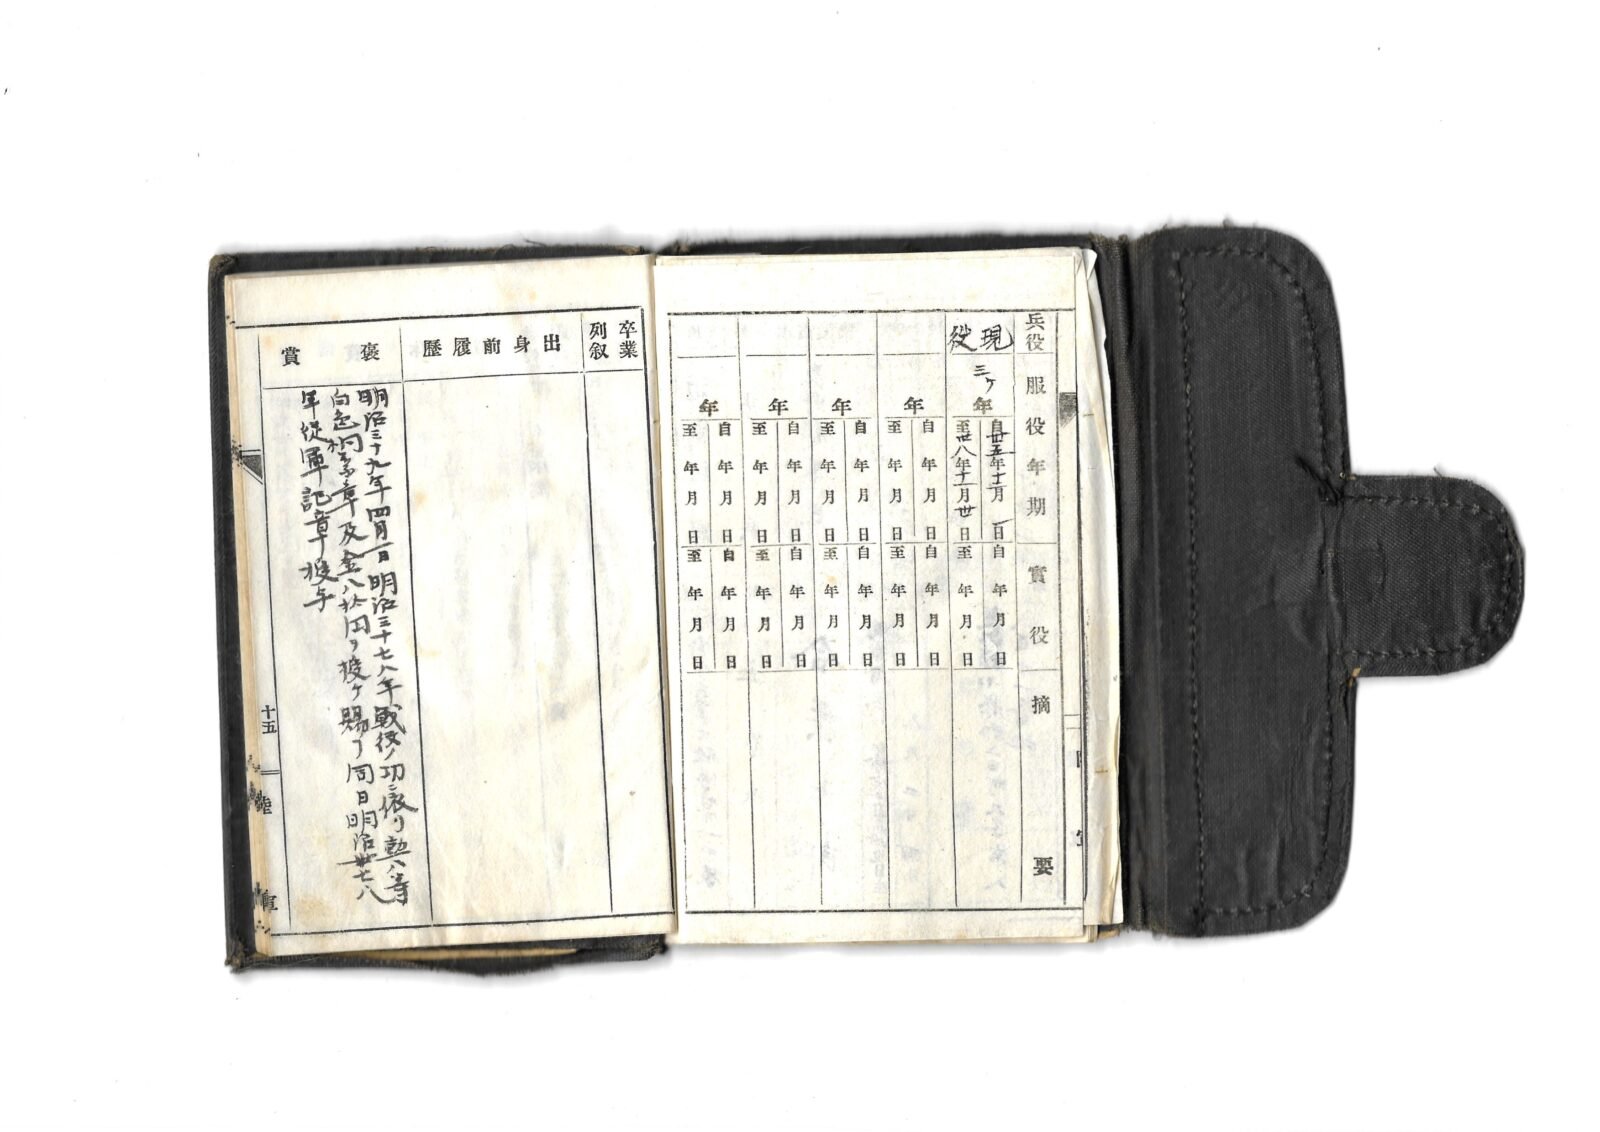 兵役
服役年期
實役
摘要
現役
三ヶ年
自卅五年十二月一日
至卅八年十一月卅日
自年月日
至年月日
年
自年月日
至年月日
自年月日
至年月日
年
自年月日
至年月日
自年月日
至年月日
年
自年月日
至年月日
自年月日
至年月日
年
自年月日
至年月日
自年月日
至年月日
卒業
列叙
出身前履歴
褒賞
明治三十九年四月一日明治三十七八年戰役ノ功ニ依リ勲八等
白色桐葉章及金八拾円ヲ授ケ賜フ同日明治卅七八
年従軍記章授与
十五
陸軍